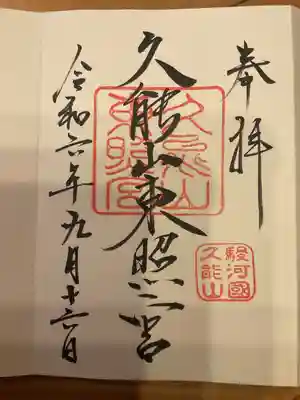 奉拝
久能山東照宮
久能山東照宮
駿河國
久能山
令和六年九月十六日